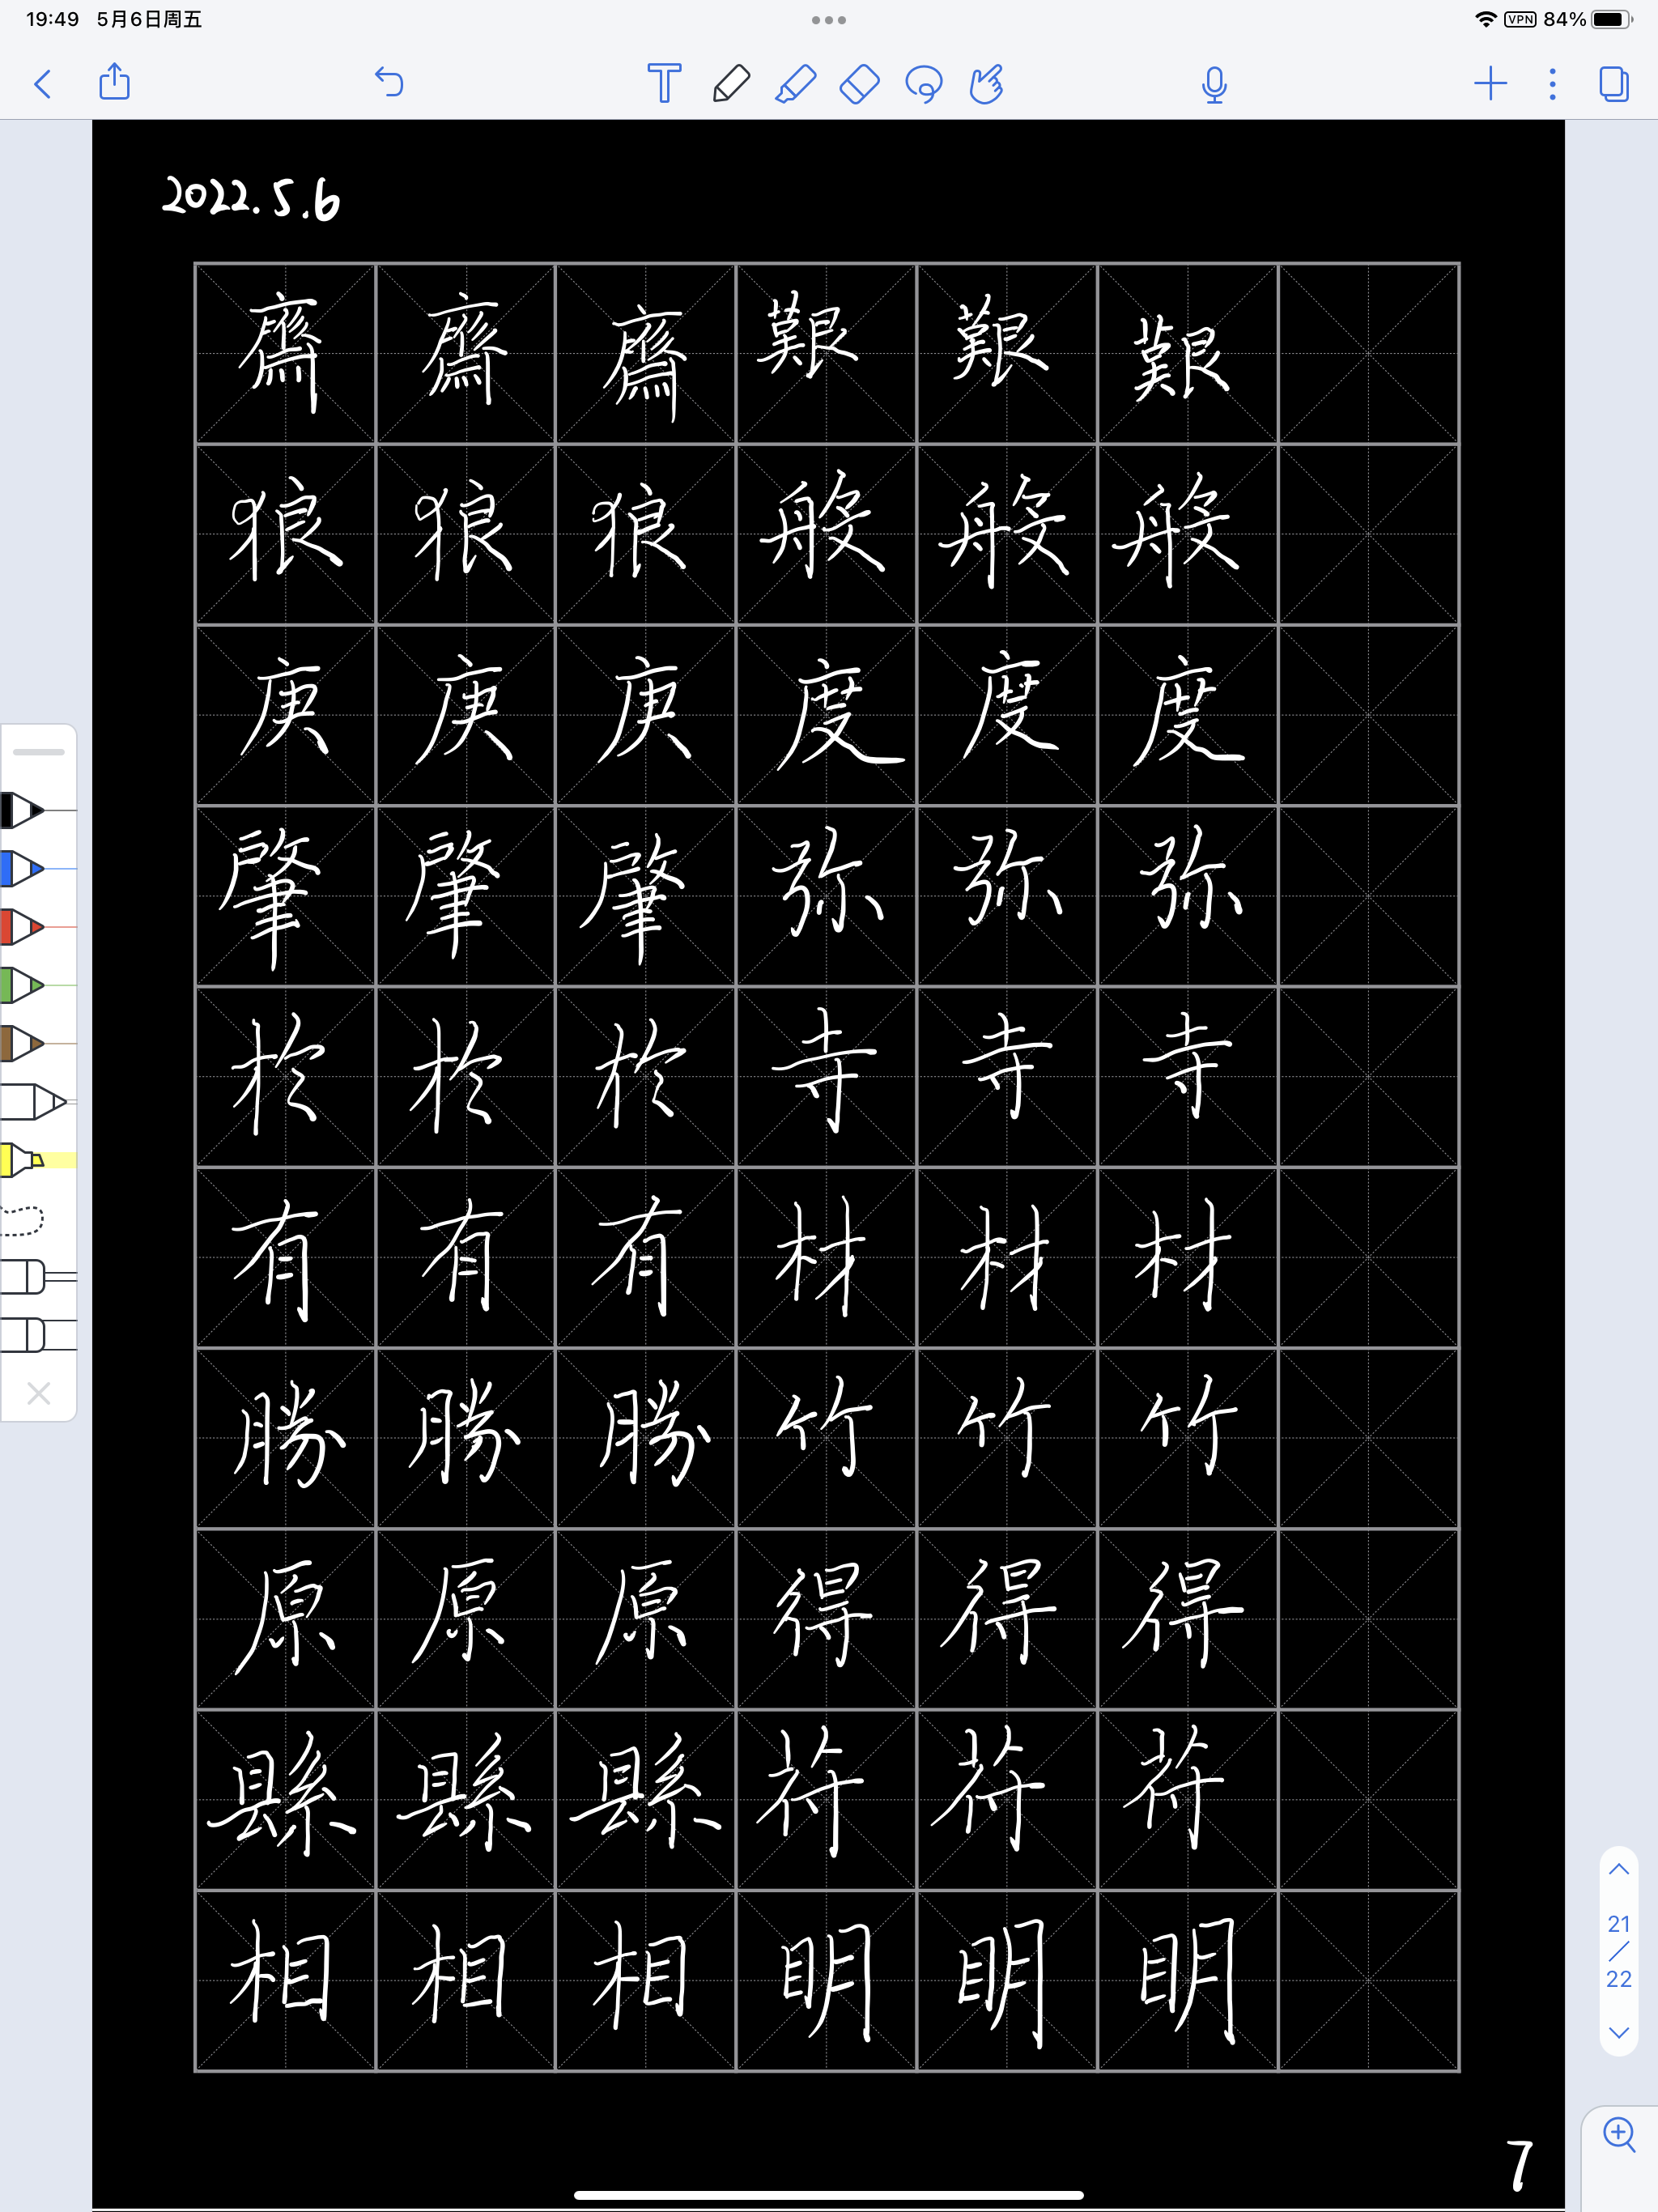 19:49 5月6日周五 VPN 84%
2022.5.6
齋 齋 齋 艱 艱 艱
狼 狼 狼 般 般 般
庚 庚 庚 度 度 度
肇 肇 肇 弥 弥 弥
於 於 於 寺 寺 寺
有 有 有 材 材 材
勝 勝 勝 竹 竹 竹
原 原 原 得 得 得
縣 縣 縣 符 符 符
相 相 相 明 明 明
21
/
22
7